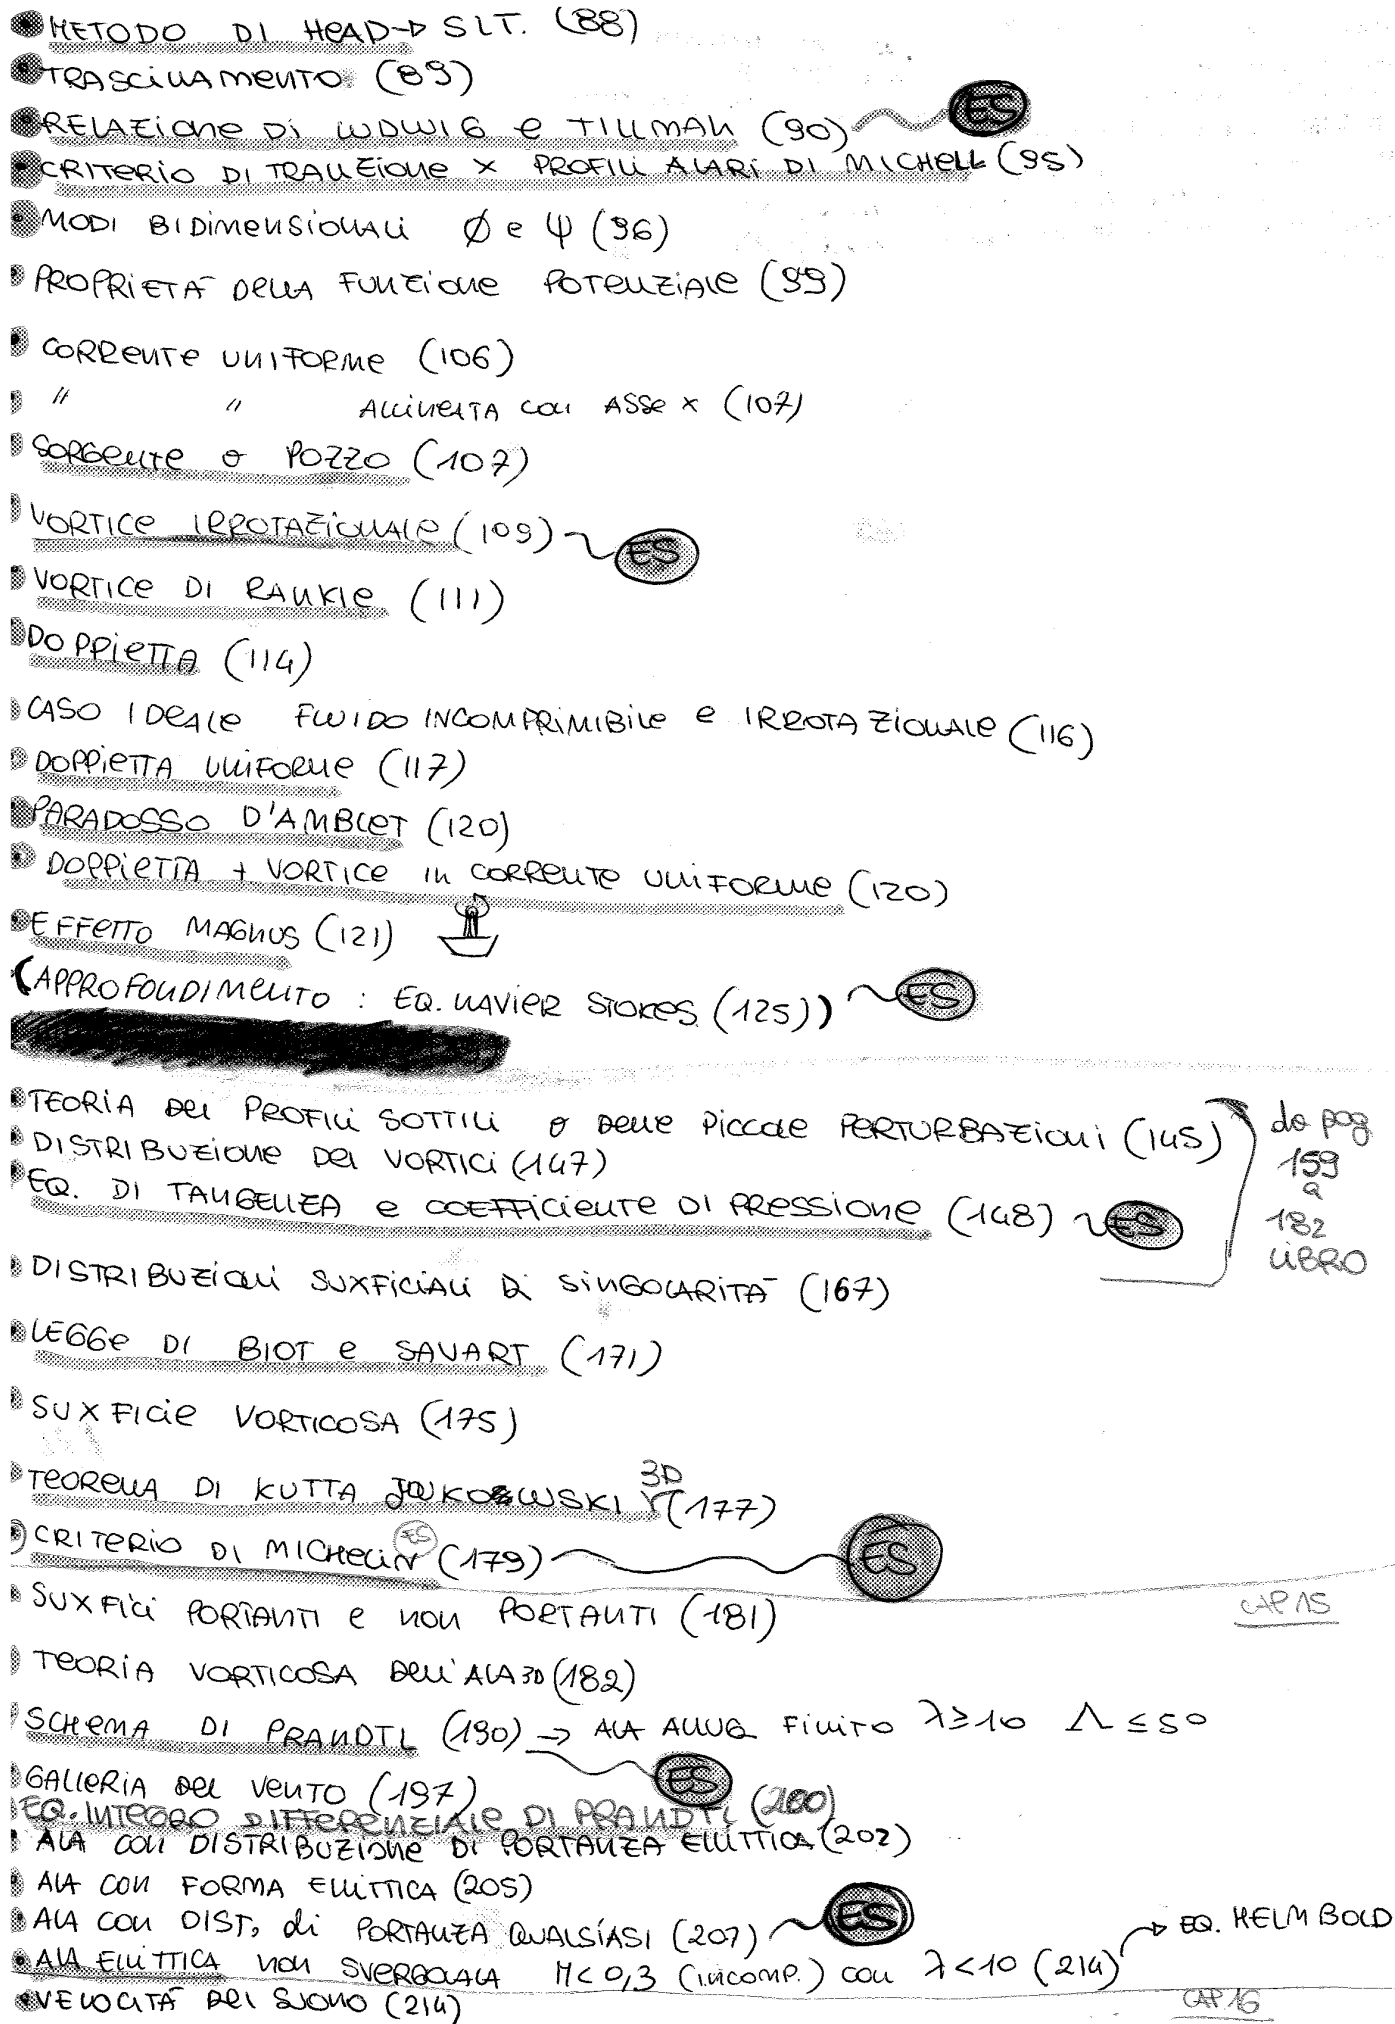 METODO DI HEAD→ SLT. (88)
TRASCINAMENTO (89)
RELAZIONE DI LUDWIG e TILLMAN (90) ES
CRITERIO DI TRANZIONE x PROFILI ALARI DI MICHELL (95)
MODI BIDIMENSIONALI Ø e ψ (96)
PROPRIETÀ DELLA FUNZIONE POTENZIALE (99)
CORRENTE UNIFORME (106)
" " ALLINEATA CON ASSE x (107)
SORGENTE o POZZO (107)
VORTICE IRROTAZIONALE (109) ES
VORTICE DI RANKIE (111)
DOPPIETTA (114)
CASO IDEALE FLUIDO INCOMPRIMIBILE e IRROTAZIONALE (116)
DOPPIETTA UNIFORME (117)
PARADOSSO D'AMBLET (120)
DOPPIETTA + VORTICE IN CORRENTE UNIFORME (120)
EFFETTO MAGNUS (121)
(APPROFONDIMENTO : EQ. NAVIER STOKES (125)) ES
TEORIA DEI PROFILI SOTTILI o DELLE PICCOLE PERTURBAZIONI (145)
DISTRIBUZIONE DEI VORTICI (147)
EQ. DI TANGENZA e COEFFICIENTE DI PRESSIONE (148) ES
da pag
159
a
182
LIBRO
DISTRIBUZIONI SUXFICIALI DI SINGOLARITÀ (167)
LEGGE DI BIOT e SAVART (171)
SUXFICIE VORTICOSA (175)
TEOREMA DI KUTTA JOUKOWSKI 3D (177)
CRITERIO DI MICHELIN ES (179) ES
SUXFICI PORTANTI e NON PORTANTI (181)
CAP 15
TEORIA VORTICOSA DELL'ALA 3D (182)
SCHEMA DI PRANDTL (190) → ALA ALLUNG FINITO λ≥10 Λ≤50
GALLERIA DEL VENTO (197) ES
EQ. INTEGRO DIFFERENZIALE DI PRANDTL (200)
ALA CON DISTRIBUZIONE DI PORTANZA ELLITTICA (202)
ALA CON FORMA ELLITTICA (205)
ALA CON DIST. di PORTANZA QUALSIASI (207) ES
ALA ELLITTICA NON SVERGOLATA M<0,3 (INCOMP.) CON λ<10 (214) → EQ. HELMBOLD
VELOCITÀ DEL SUONO (214)
CAP. 16